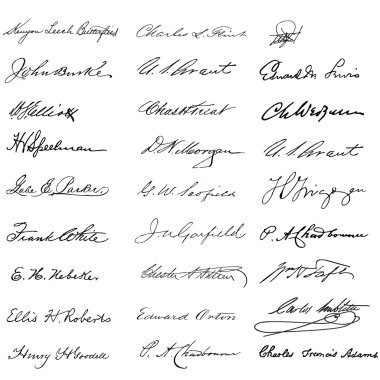 Kenyon Leech Butterfield Charles L. Flint
John Burke U. S. Grant Edward M. Lewis
W. Elliott Chas H Treat
H V Speelman D. N. Morgan U. S. Grant
Gabe E. Parker G. W. Scofield
Frank White J. A. Garfield P. A. Chadbourne
E. H. Nebeker Chester A Arthur Wm H Taft
Ellis H. Roberts Edward Orton
Henry H Goodell P. A. Chadbourne Charles Francis Adams